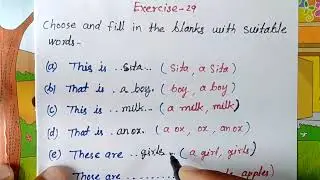 Exercise-29
Choose and fill in the blanks with suitable
words-
(a) This is ..Sita.. (Sita, a Sita)
(b) That is . a boy. (boy, a boy)
(c) This is ..milk.. (a milk, milk)
(d) That is . an ox. (a ox, ox, an ox)
(e) These are ..girls.. (a girl, girls)
These are .......... apples)